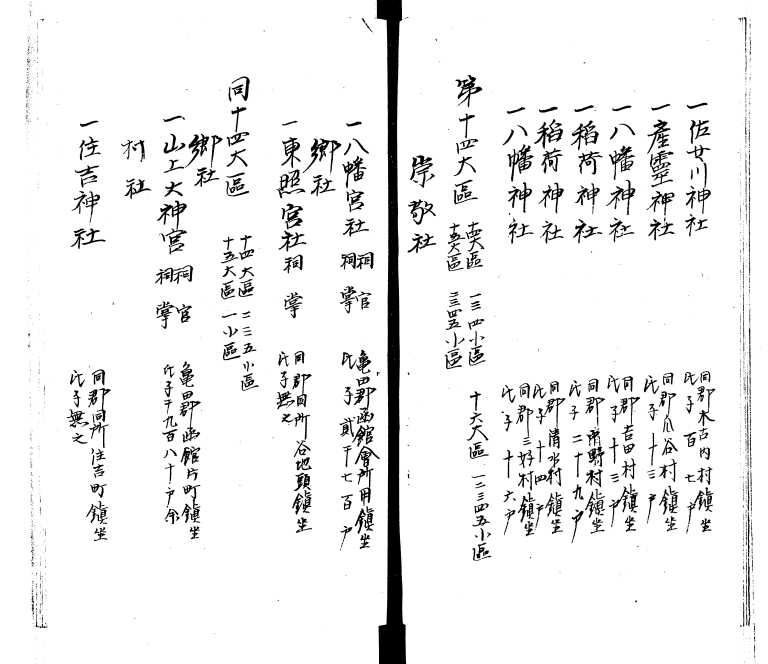 一佐女川神社
同郡木古内村鎮坐
氏子百七戸
一産靈神社
同郡瓜谷村鎮坐
氏子十三戸
一八幡神社
同郡吉田村鎮坐
氏子十三戸
一稻荷神社
同郡市野村鎮坐
氏子二十九戸
一稻荷神社
同郡清水村鎮坐
氏子十四戸
一八幡神社
同郡三好村鎮坐
氏子十六戸
第十四大區
十四大區 一三四小區
十五大區 二三四五小區
十六大區 一二三四五小區
崇敬社
一八幡宮社
祠官
祠掌
亀田郡函館會所町鎮坐
氏子貳千七百戸
郷社
一東照宮社
祠掌
同郡同所谷地頭鎮坐
氏子無之
同十四大區
十四大區 二三五小區
十五大區 一小區
郷社
一山上大神宮
祠官
祠掌
亀田郡函館片町鎮坐
氏子千九百八十戸余
村社
一住吉神社
同郡同所住吉町鎮坐
氏子無之